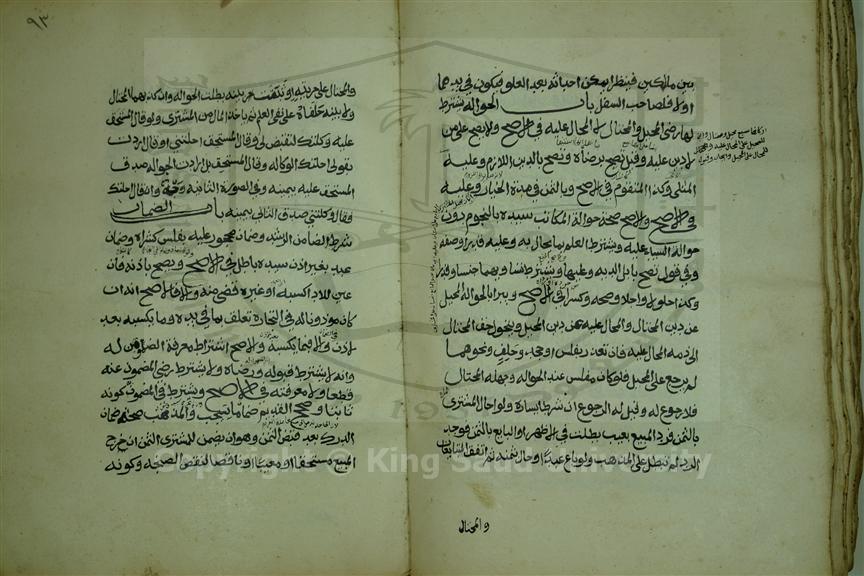 بين مالكين فينظر ايمكن احداثه بعد العلو فيكون في يدهما
اولا فلصاحب السفل باب الحوالة يشترط
لها رضى المحيل والمحتال لا المحال عليه في الاصح ولا تصح على من
لا دين عليه وقيل تصح برضاه وتصح بالدين اللازم وعليه
المثلي وكذا المتقوم في الاصح وبالثمن في مدة الخيار وعليه
في الاصح والاصح صحة حوالة المكاتب سيده بالنجوم دون
حوالة السيد عليه ويشترط العلم بما يحال به وعليه قدرا وصفة
وفي قول تصح بابل الدية وعليها ويشترط تساويهما جنسا وقدرا
وكذا حلولا واجلا وصحة وكسرا في الاصح ويبرا بالحوالة المحيل
عن دين المحتال والمحال عليه عن دين المحيل ويتحول حق المحتال
الى ذمة المحال عليه فان تعذر بفلس او جحد وحلف ونحوهما
لم يرجع على المحيل فلو كان مفلسا عند الحوالة وجهله المحتال
فلا رجوع له وقيل له الرجوع ان شرط يساره ولو احال المشتري
بالثمن فرد المبيع بعيب بطلت في الاظهر او البايع بالثمن فوجد
الرد لم تبطل على المذهب ولو باع عبدا واحال بثمنه ثم اتفق المتبايعان
والمحتال
٩٣
والمحتال على حريته او ثبتت ببينة بطلت الحوالة وان كذبهما المحتال
ولا بينة حلفاه على نفي العلم ثم ياخذ المال من المشتري ولو قال المستحق
عليه وكلتك لتقبض لي وقال المستحق احلتني او قال اردت
بقولي احلتك الوكالة وقال المستحق بل اردت الحوالة صدق
المستحق عليه بيمينه وفي الصورة الثانية وجه وان قال احلتك
فقال وكلتني صدق الثاني بيمينه باب الضمان
شرط الضامن الرشد وضمان محجور عليه بفلس كشراه وضمان
عبد بغير اذن سيده باطل في الاصح ويصح باذنه فان
عين للاداء كسبه او غيره قضى منه والا فالاصح انه ان
كان مأذونا له في التجارة تعلق بما في يده وما يكسبه بعد
الاذن والا فبما يكسبه والاصح اشتراط معرفة المضمون له
وانه لا يشترط قبوله ورضاه ولا يشترط رضى المضمون عنه
قطعا ولا معرفته في الاصح ويشترط في المضمون كونه
ثابتا وصحح القديم ضمان ما سيجب والمذهب صحة ضمان
الدرك بعد قبض الثمن وهو ان يضمن للمشتري الثمن ان خرج
المبيع مستحقا او معيبا او ناقصا لنقص الصنجة وكونه
Copyright © King Saud University